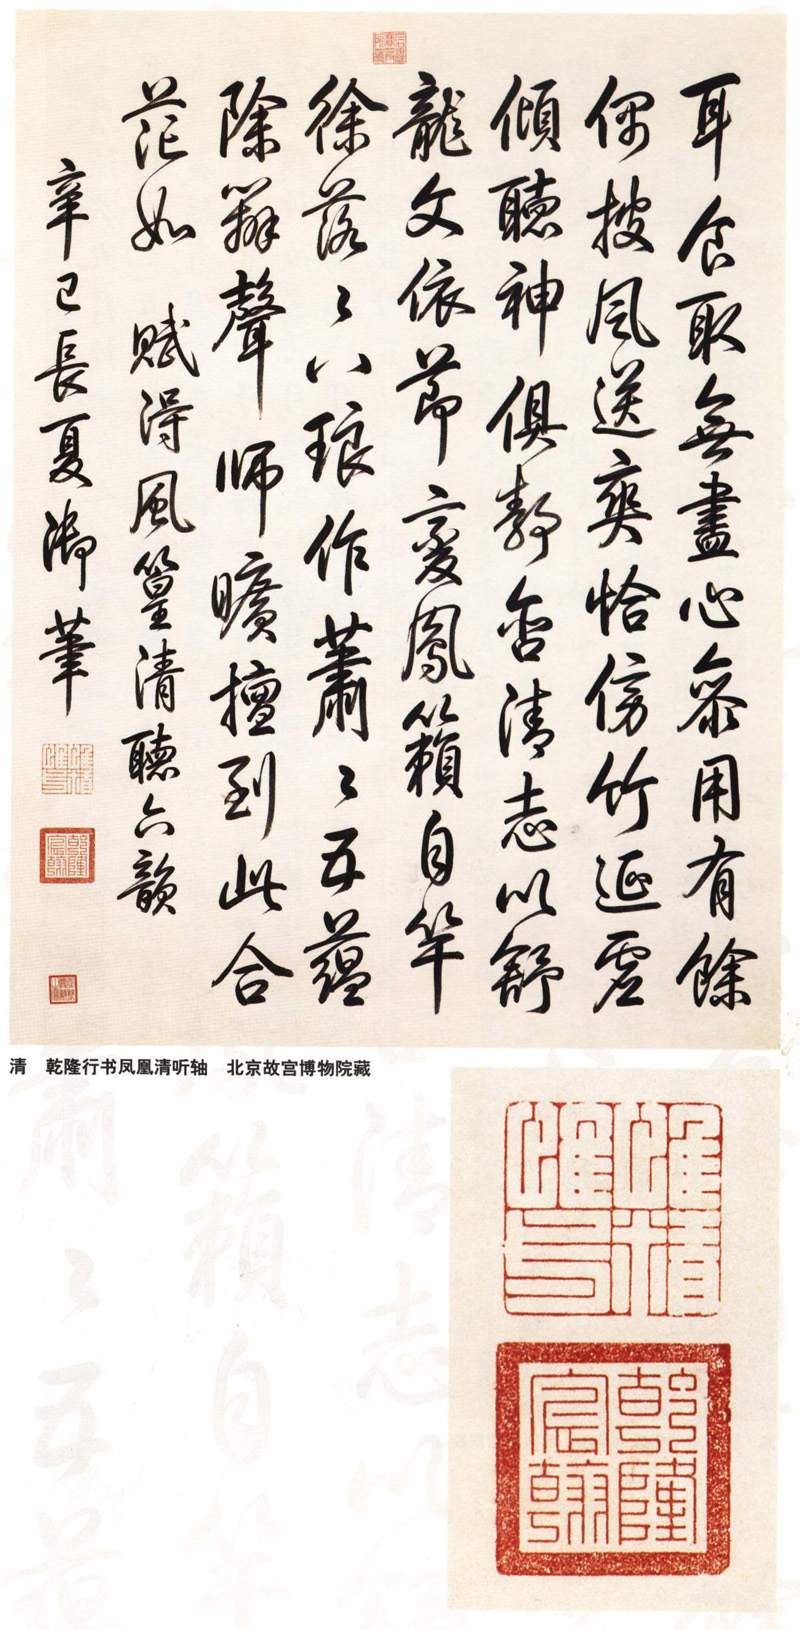 耳食取無盡心參用有餘
偶披風送爽恰傍竹延虛
傾聽神俱靜含清志以舒
龍文依節變鳳籟自竿
徐落〻八琅作蕭〻五蘊
除辨聲師曠擅到此合
茫如 賦得風篁清聽六韻
辛巳長夏御筆
清 乾隆行书凤凰清听轴 北京故宫博物院藏
惟精惟一
乾隆宸翰